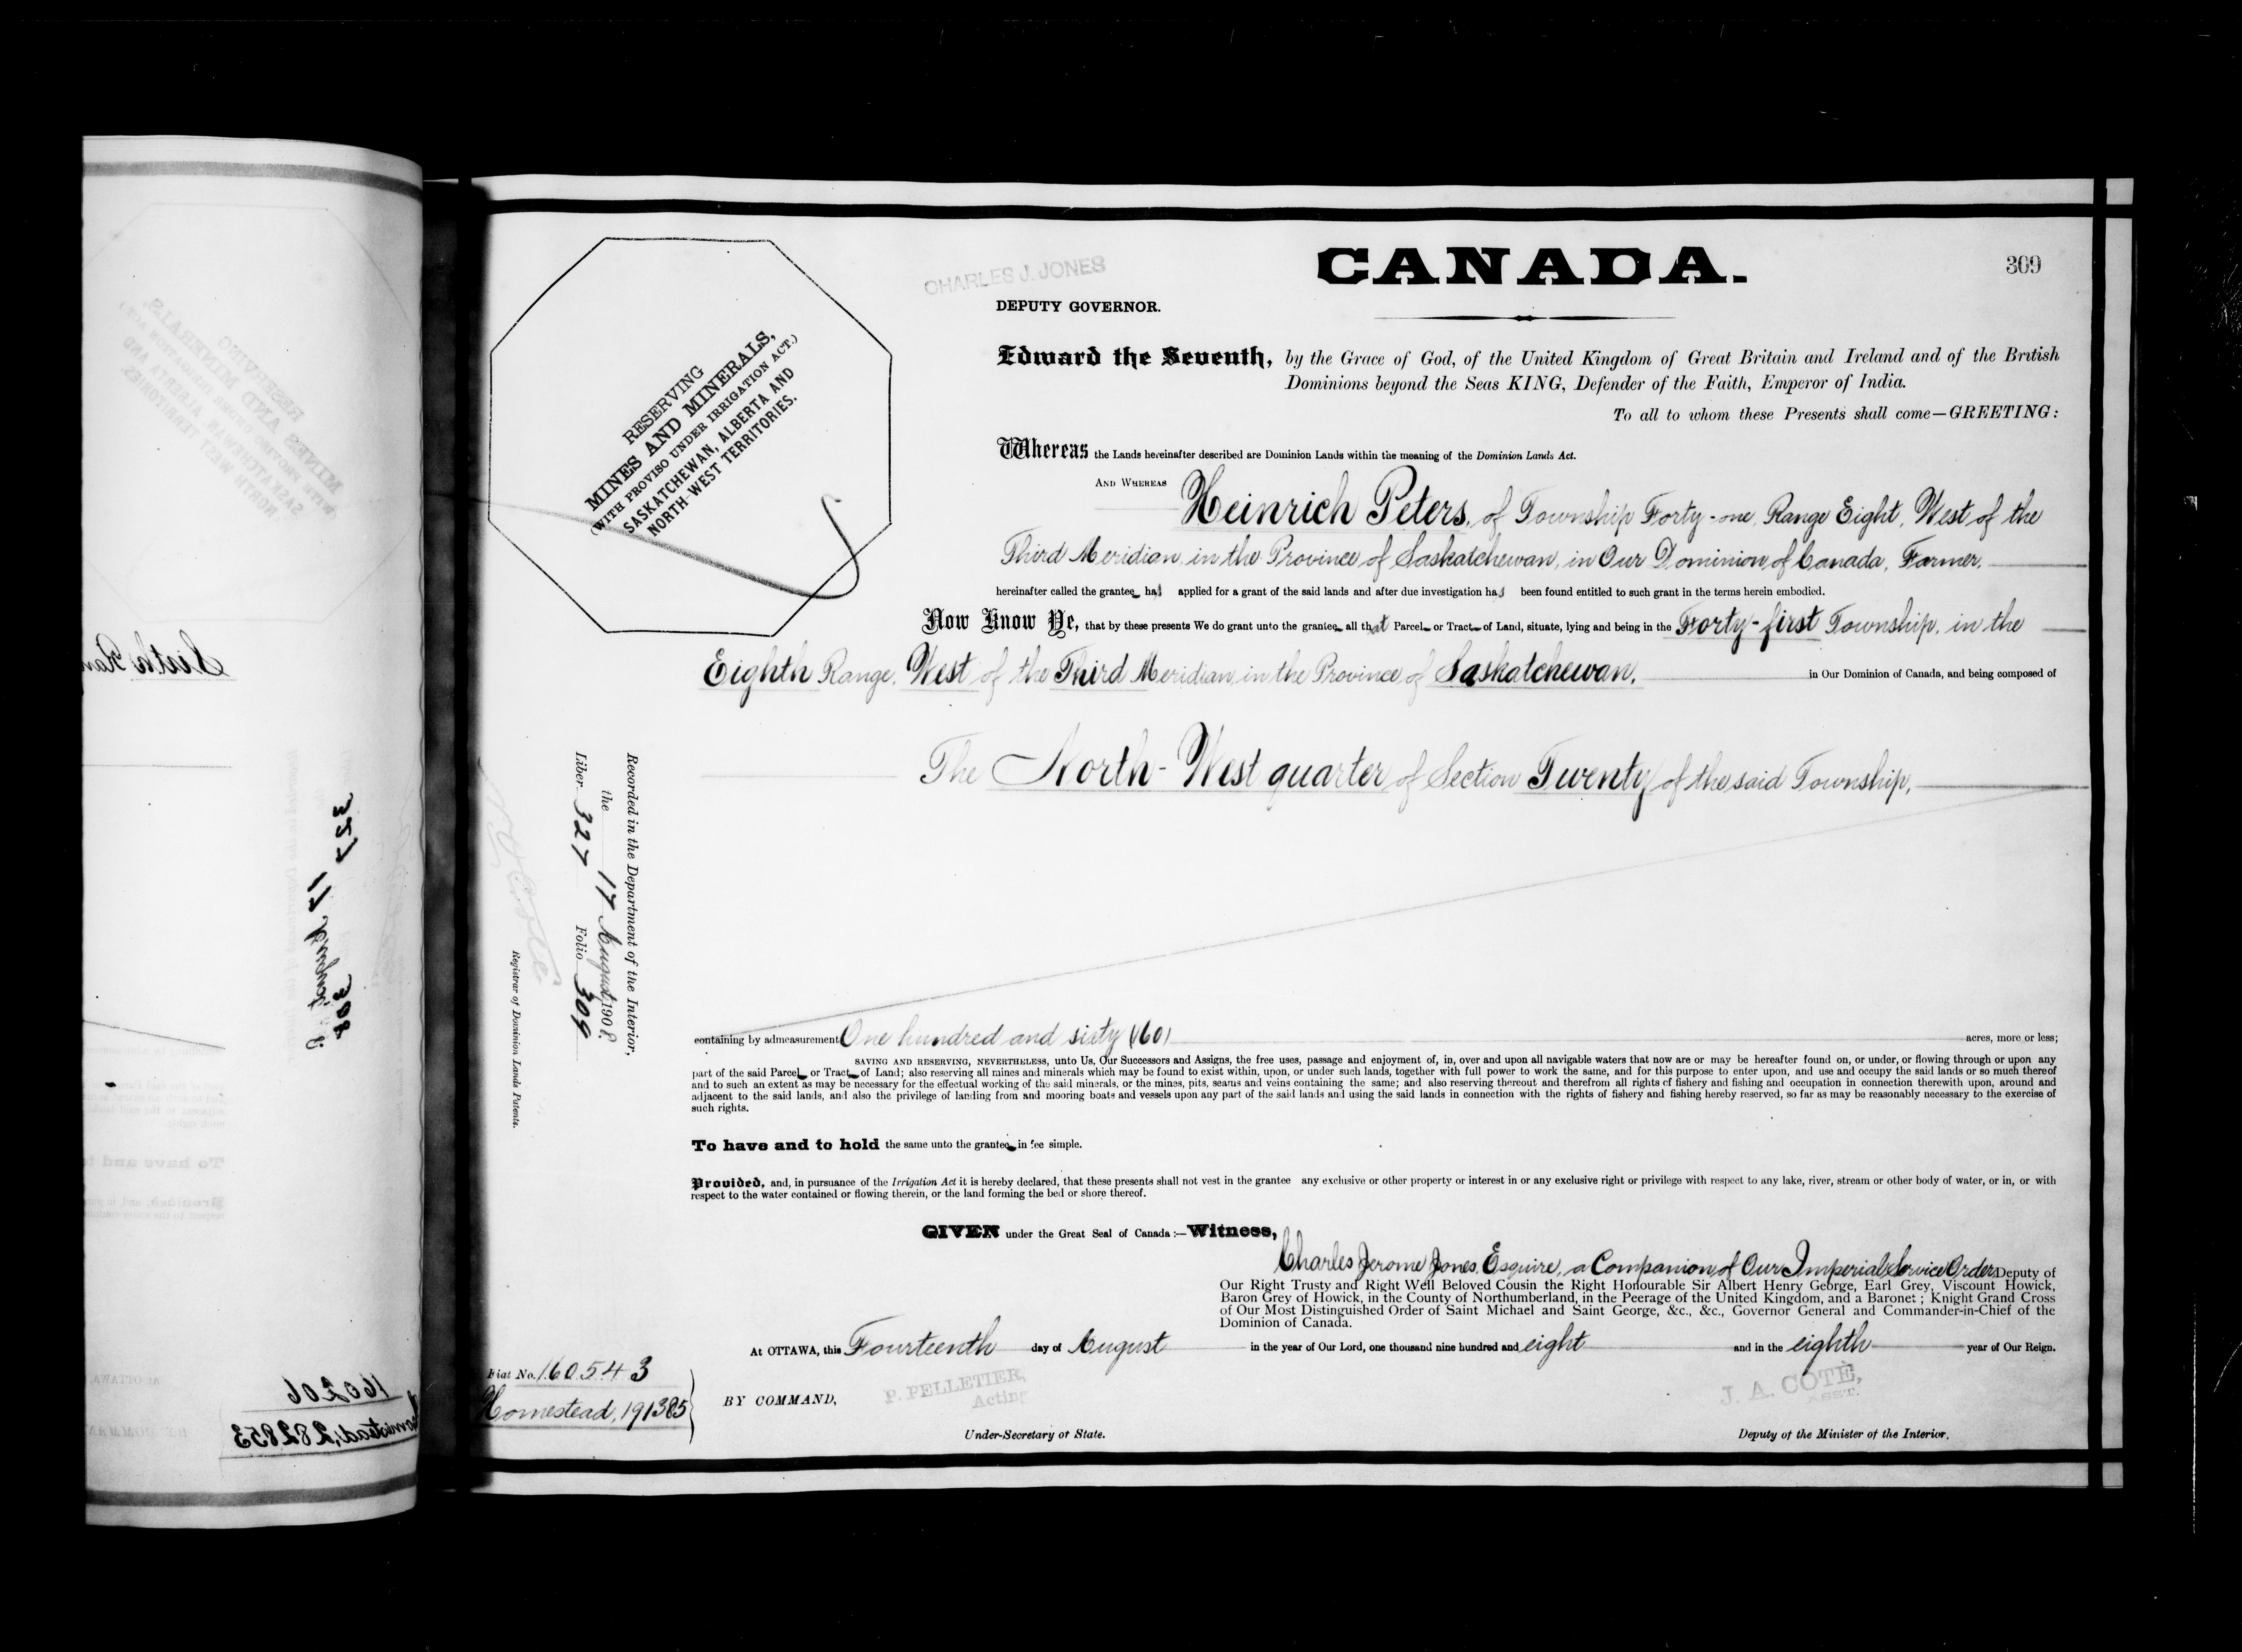 CANADA.
309
CHARLES J. JONES
DEPUTY GOVERNOR.
RESERVING
MINES AND MINERALS,
(WITH PROVISO UNDER IRRIGATION ACT.)
SASKATCHEWAN, ALBERTA AND
NORTH-WEST TERRITORIES.
Edward the Seventh, by the Grace of God, of the United Kingdom of Great Britain and Ireland and of the British
Dominions beyond the Seas KING, Defender of the Faith, Emperor of India.
To all to whom these Presents shall come—GREETING:
Whereas the Lands hereinafter described are Dominion Lands within the meaning of the Dominion Lands Act.
AND WHEREAS Heinrich Peters, of Township Forty-one, Range Eight, West of the
Third Meridian, in the Province of Saskatchewan, in Our Dominion of Canada, Farmer,
hereinafter called the grantee has applied for a grant of the said lands and after due investigation has been found entitled to such grant in the terms herein embodied.
Now Know Ye, that by these presents We do grant unto the grantee all that Parcel or Tract of Land, situate, lying and being in the Forty-first Township, in the
Eighth Range, West of the Third Meridian, in the Province of Saskatchewan, in Our Dominion of Canada, and being composed of
The North-West quarter of Section Twenty of the said Township,
Recorded in the Department of the Interior,
the 17 August 1908.
Liber 327 Folio 309
Registrar of Dominion Lands Patents.
containing by admeasurement One hundred and sixty (160) acres, more or less;
SAVING AND RESERVING, NEVERTHELESS, unto Us, Our Successors and Assigns, the free uses, passage and enjoyment of, in, over and upon all navigable waters that now are or may be hereafter found on, or under, or flowing through or upon any
part of the said Parcel or Tract of Land; also reserving all mines and minerals which may be found to exist within, upon, or under such lands, together with full power to work the same, and for this purpose to enter upon, and use and occupy the said lands or so much thereof
and to such an extent as may be necessary for the effectual working of the said minerals, or the mines, pits, seams and veins containing the same; and also reserving thereout and therefrom all rights of fishery and fishing and occupation in connection therewith upon, around and
adjacent to the said lands, and also the privilege of landing from and mooring boats and vessels upon any part of the said lands and using the said lands in connection with the rights of fishery and fishing hereby reserved, so far as may be reasonably necessary to the exercise of
such rights.
To have and to hold the same unto the grantee in fee simple.
Provided, and, in pursuance of the Irrigation Act it is hereby declared, that these presents shall not vest in the grantee any exclusive or other property or interest in or any exclusive right or privilege with respect to any lake, river, stream or other body of water, or in, or with
respect to the water contained or flowing therein, or the land forming the bed or shore thereof.
GIVEN under the Great Seal of Canada:—Witness,
Charles Jerome Jones, Esquire, a Companion of Our Imperial Service Order, Deputy of
Our Right Trusty and Right Well Beloved Cousin the Right Honourable Sir Albert Henry George, Earl Grey, Viscount Howick,
Baron Grey of Howick, in the County of Northumberland, in the Peerage of the United Kingdom, and a Baronet; Knight Grand Cross
of Our Most Distinguished Order of Saint Michael and Saint George, &c., &c., Governor General and Commander-in-Chief of the
Dominion of Canada.
At OTTAWA, this Fourteenth day of August in the year of Our Lord, one thousand nine hundred and eight and in the eighth year of Our Reign.
Fiat No. 160543
Homestead, 191385
BY COMMAND,
P. PELLETIER,
Acting
Under-Secretary of State.
J. A. COTÉ,
ASST.
Deputy of the Minister of the Interior.